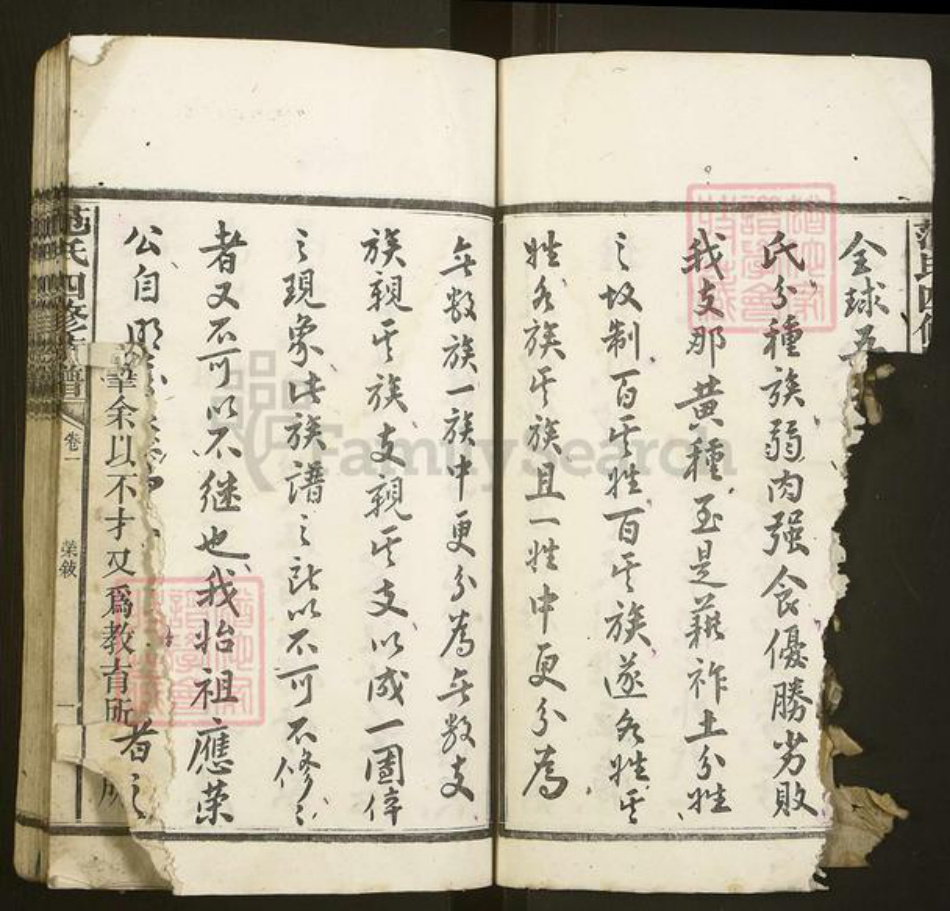 全球五
氏分種族弱肉强食優勝劣敗
我支那黄種至是藉祚土分姓
之故制百其姓百其族遂各姓其
姓各族其族且一姓中更分為
無数族一族中更分為無数支
族親其族支親其支以成一團体
之現象此族譜之所以不可不修之
者又不可以不继也我始祖應荣
公自明
者之
華余以不才又爲教育所
范氏四修族譜
卷一
榮敘
一
FamilySearch